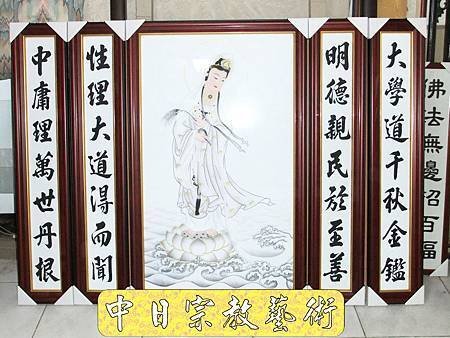 大學道千秋金鑑
明德親民於至善
性理大道得而聞
中庸理萬世丹根
佛法無邊招百福
中日宗教藝術